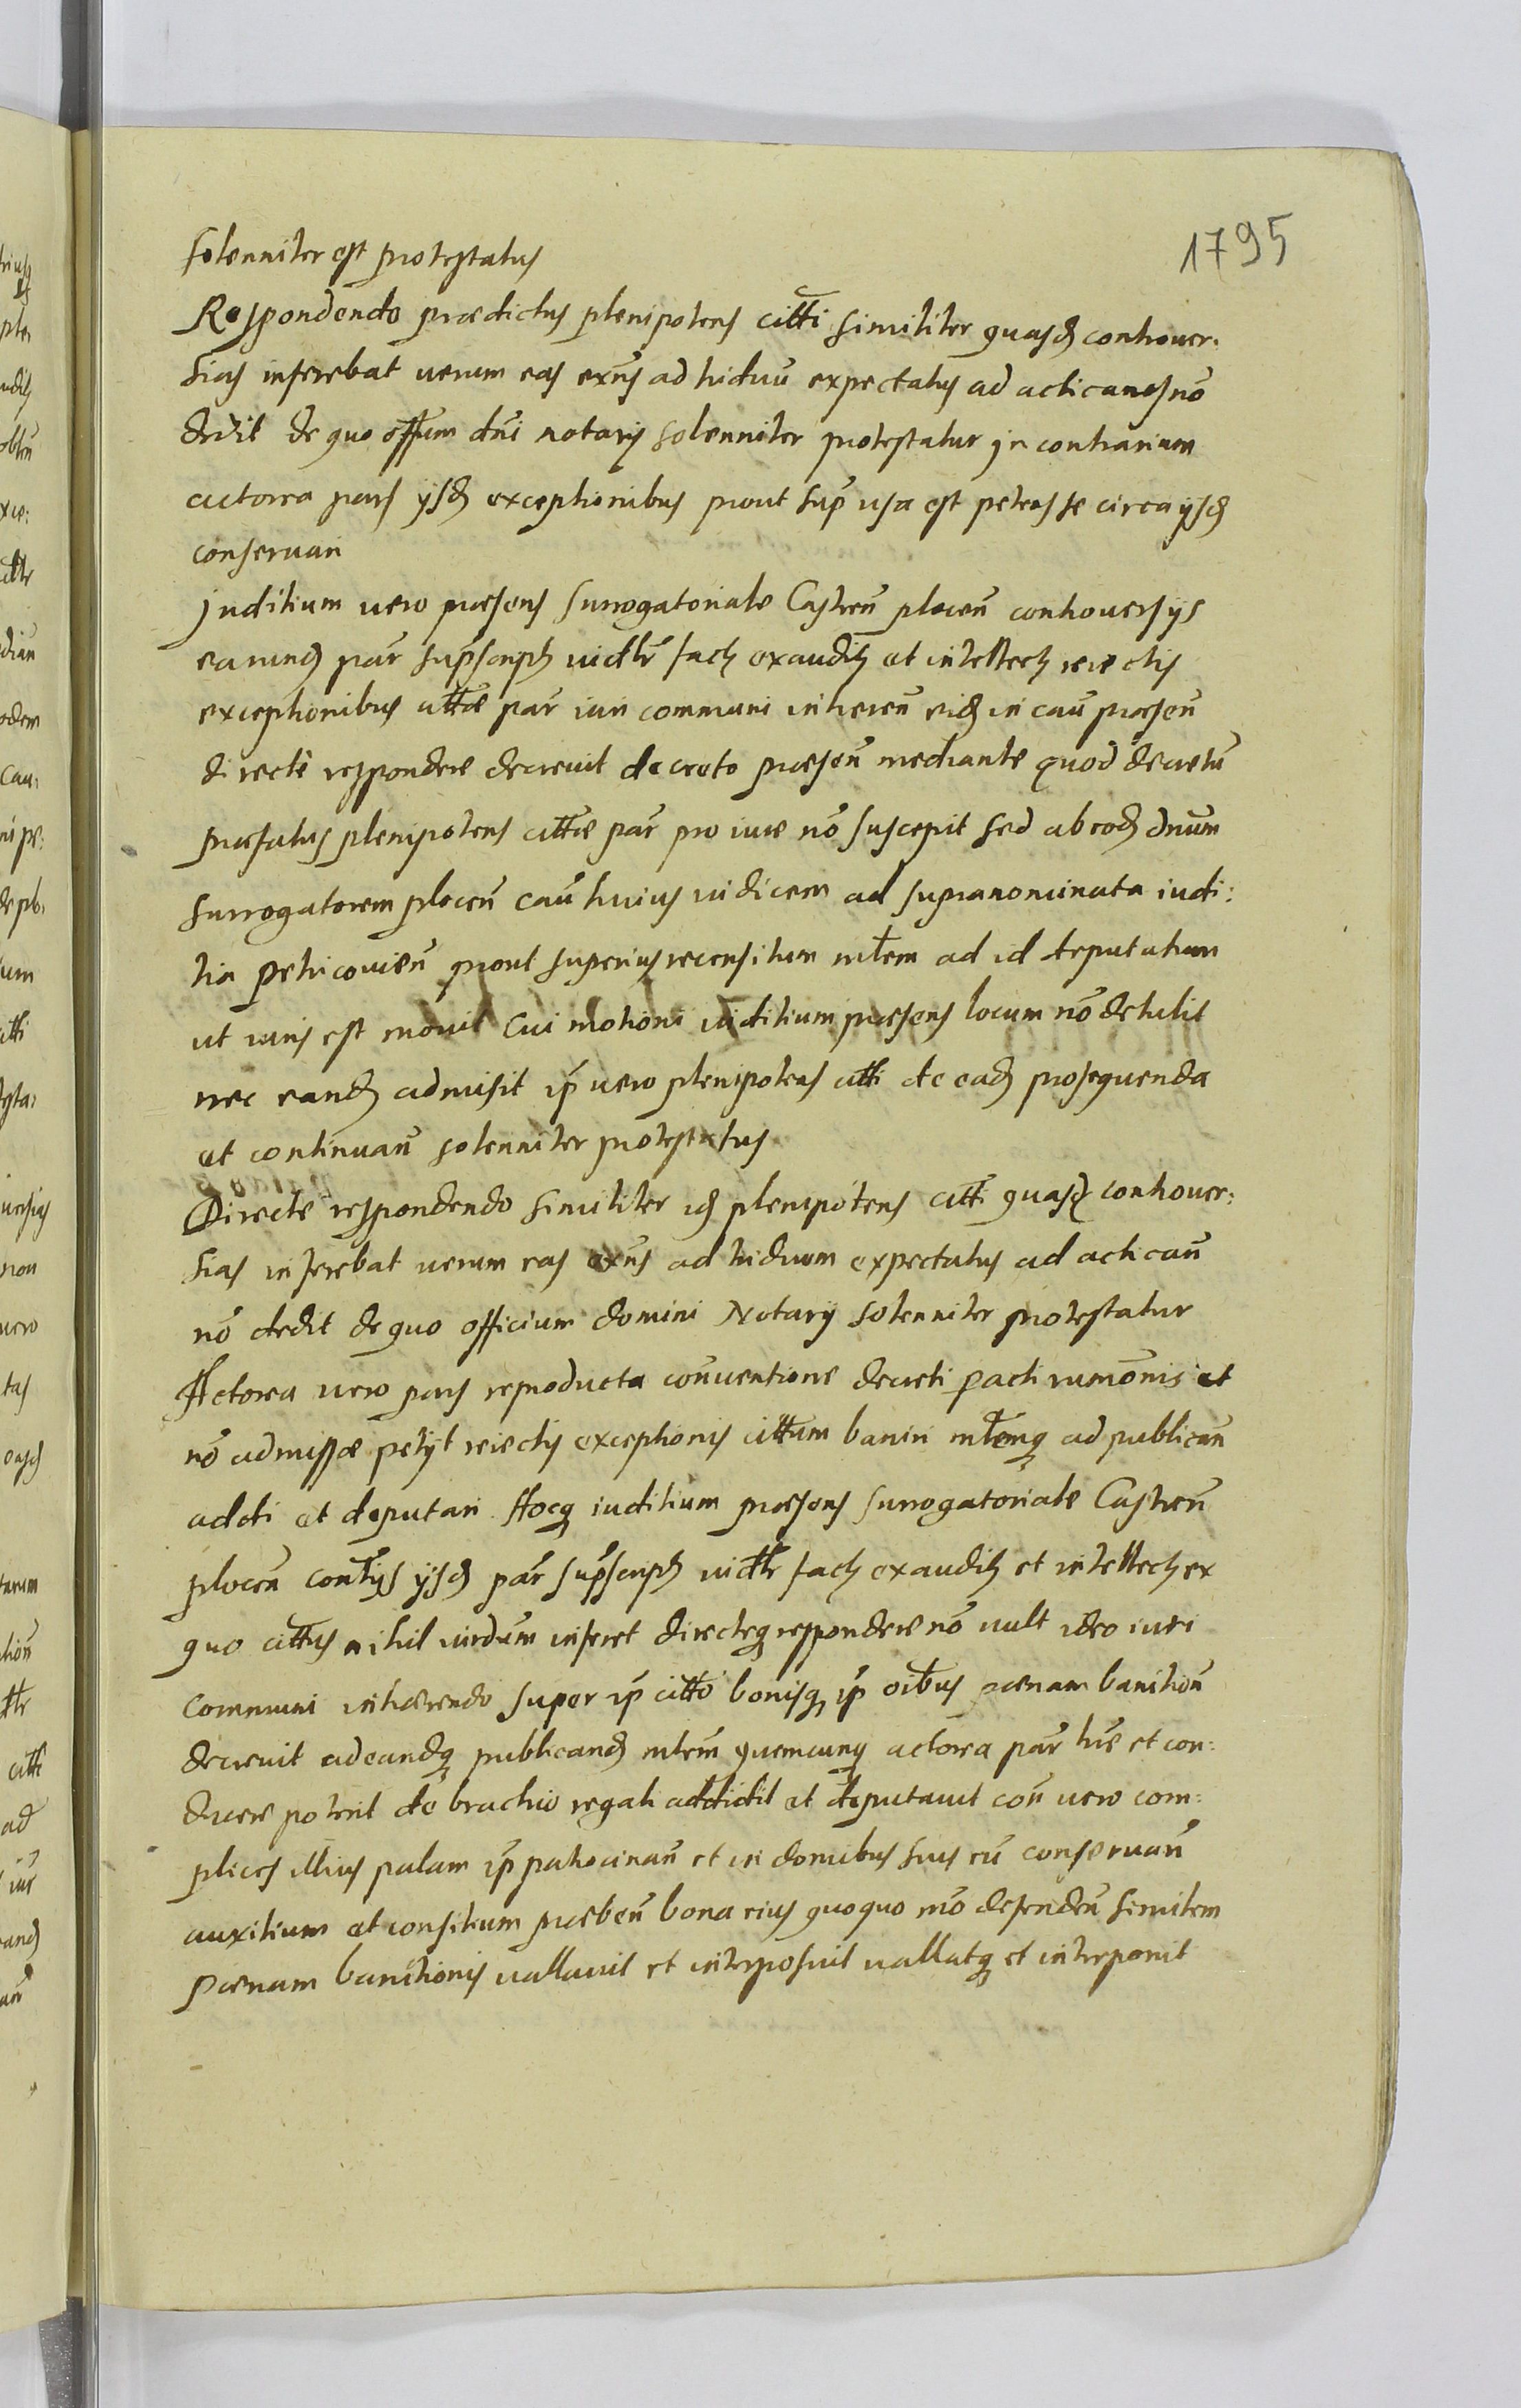 1795
solenniter est protestatus
Respondendo prædictus plenipotens citti similiter quasd controuer:
sias inferebat uerum eas exns ad triduũ expectatus ad acticand nõ
dedit de quo offum dni notarij solenniter protestatur In contrarium
actorea pars ysd exceptionibus prout sup usa est petens se circa ysd
conseruari
Juditium uero præsens Surrogatoriale Castreñ plocen̄ controuersijs
earund par supscript iudtr fact exaudit et intellect reiectis
exceptionibus cittæ par iuri communi inheren̄ eid in cau præsen̄
directè respondere decreuit decreto præsen̄ mediante quod decretũ
præfatus plenipotens cittæ par pro iure nõ suscepit sed ab eod dnum
surrogatorem plocen̄ cau huius iudicem ad supranominata iudi:
tia petricouien̄ prout superius recensitum mtem ad id deputatum
ut iuris est mouit Cui motioni iuditium præsens locum nõ detulit
nec eand admisit ip uero plenipotens citti de ead prosequenda
et continuan̄ solenniter protestatus
Directè respondendo similiter id plenipotens citti quasd controuer:
sias inferebat uerum eas exns ad triduum expectatus ad actican̄
nõ dedit de quo officium domini Notarij solenniter protestatur
Actorea uero pars reproducta conuentione decreti pacti
nõ admissæ petijt reiectis exceptionis cittum baniri mtemq ad publican̄
addi et deputari Hocq iuditium præsens surrogatoriale Castren̄
plocen̄ contijs ysd par supscript iudtr fact exaudit et intellect ex
quo cittus nihil inferet directeq respondere nõ uult ideo iuri
communi inhærendo super ip citto bonisq ip oibus pœnam banition̄
decreuit ad eandq publicand mtem quemcunq actorea par hre et con:
ducere poterit de brachio regali addidit et deputauit con̄ uero com:
plices illius palam ip patrocinan̄ et in domibus suis eũ conseruan̄
auxilium et consilium præben̄ bona eius quoquo mõ defenden̄ similem
pœnam banitionis uallauit et interposuit uallatq et interponit